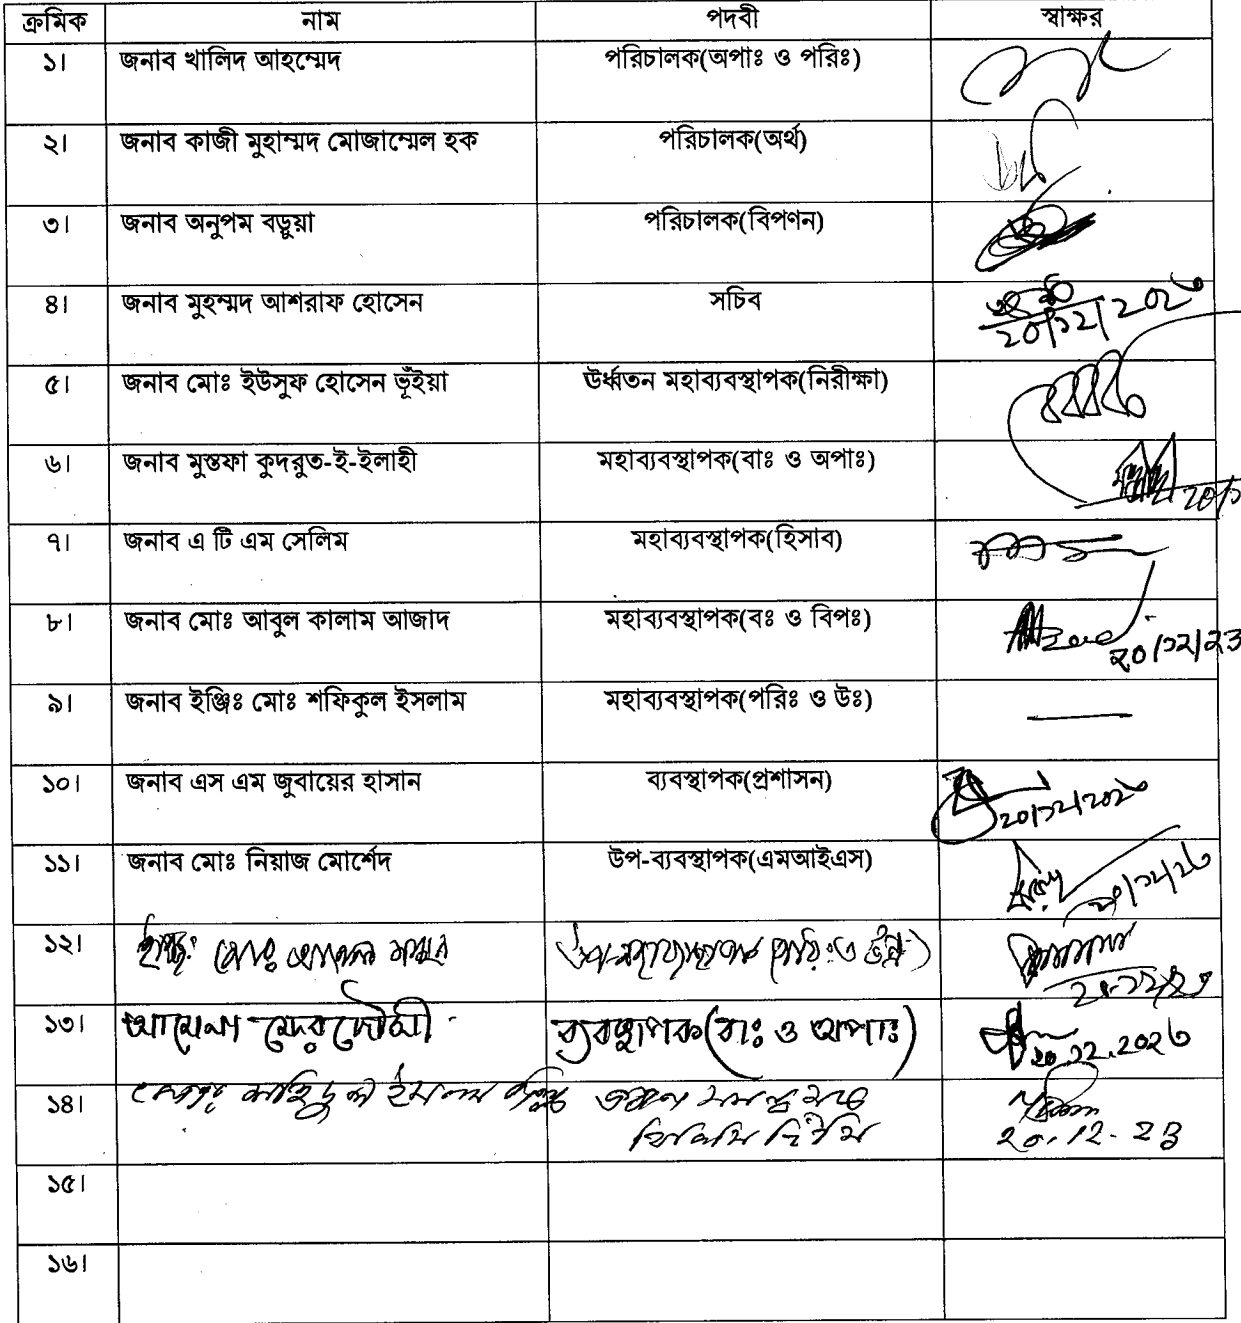 ক্রমিক নাম পদবী স্বাক্ষর
১। জনাব খালিদ আহম্মেদ পরিচালক(অপাঃ ও পরিঃ)
২। জনাব কাজী মুহাম্মদ মোজাম্মেল হক পরিচালক(অর্থ)
৩। জনাব অনুপম বড়ুয়া পরিচালক(বিপণন)
৪। জনাব মুহম্মদ আশরাফ হোসেন সচিব
২০/১২/২০২৩
৫। জনাব মোঃ ইউসুফ হোসেন ভূঁইয়া ঊর্ধ্বতন মহাব্যবস্থাপক(নিরীক্ষা)
৬। জনাব মুস্তফা কুদরুত-ই-ইলাহী মহাব্যবস্থাপক(বাঃ ও অপাঃ)
৭। জনাব এ টি এম সেলিম মহাব্যবস্থাপক(হিসাব)
৮। জনাব মোঃ আবুল কালাম আজাদ মহাব্যবস্থাপক(বঃ ও বিপঃ)
২০/১২/২৩
৯। জনাব ইঞ্জিঃ মোঃ শফিকুল ইসলাম মহাব্যবস্থাপক(পরিঃ ও উঃ)
১০। জনাব এস এম জুবায়ের হাসান ব্যবস্থাপক(প্রশাসন)
২০/১২/২০২৩
১১। জনাব মোঃ নিয়াজ মোর্শেদ উপ-ব্যবস্থাপক(এমআইএস)
২০/১২/২৩
১২। মোঃ
১৩। ব্যবস্থাপক(বাঃ ও অপাঃ) ২০.১২.২০২৩
১৪। ইসলাম
২০.১২.২৩
১৫।
১৬।